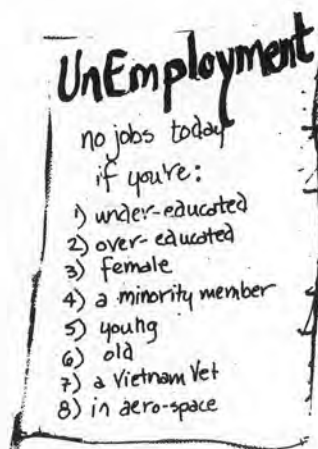 UnEmployment
no jobs today
if you're:
1) under-educated
2) over-educated
3) female
4) a minority member
5) young
6) old
7) a Vietnam Vet
8) in aero-space